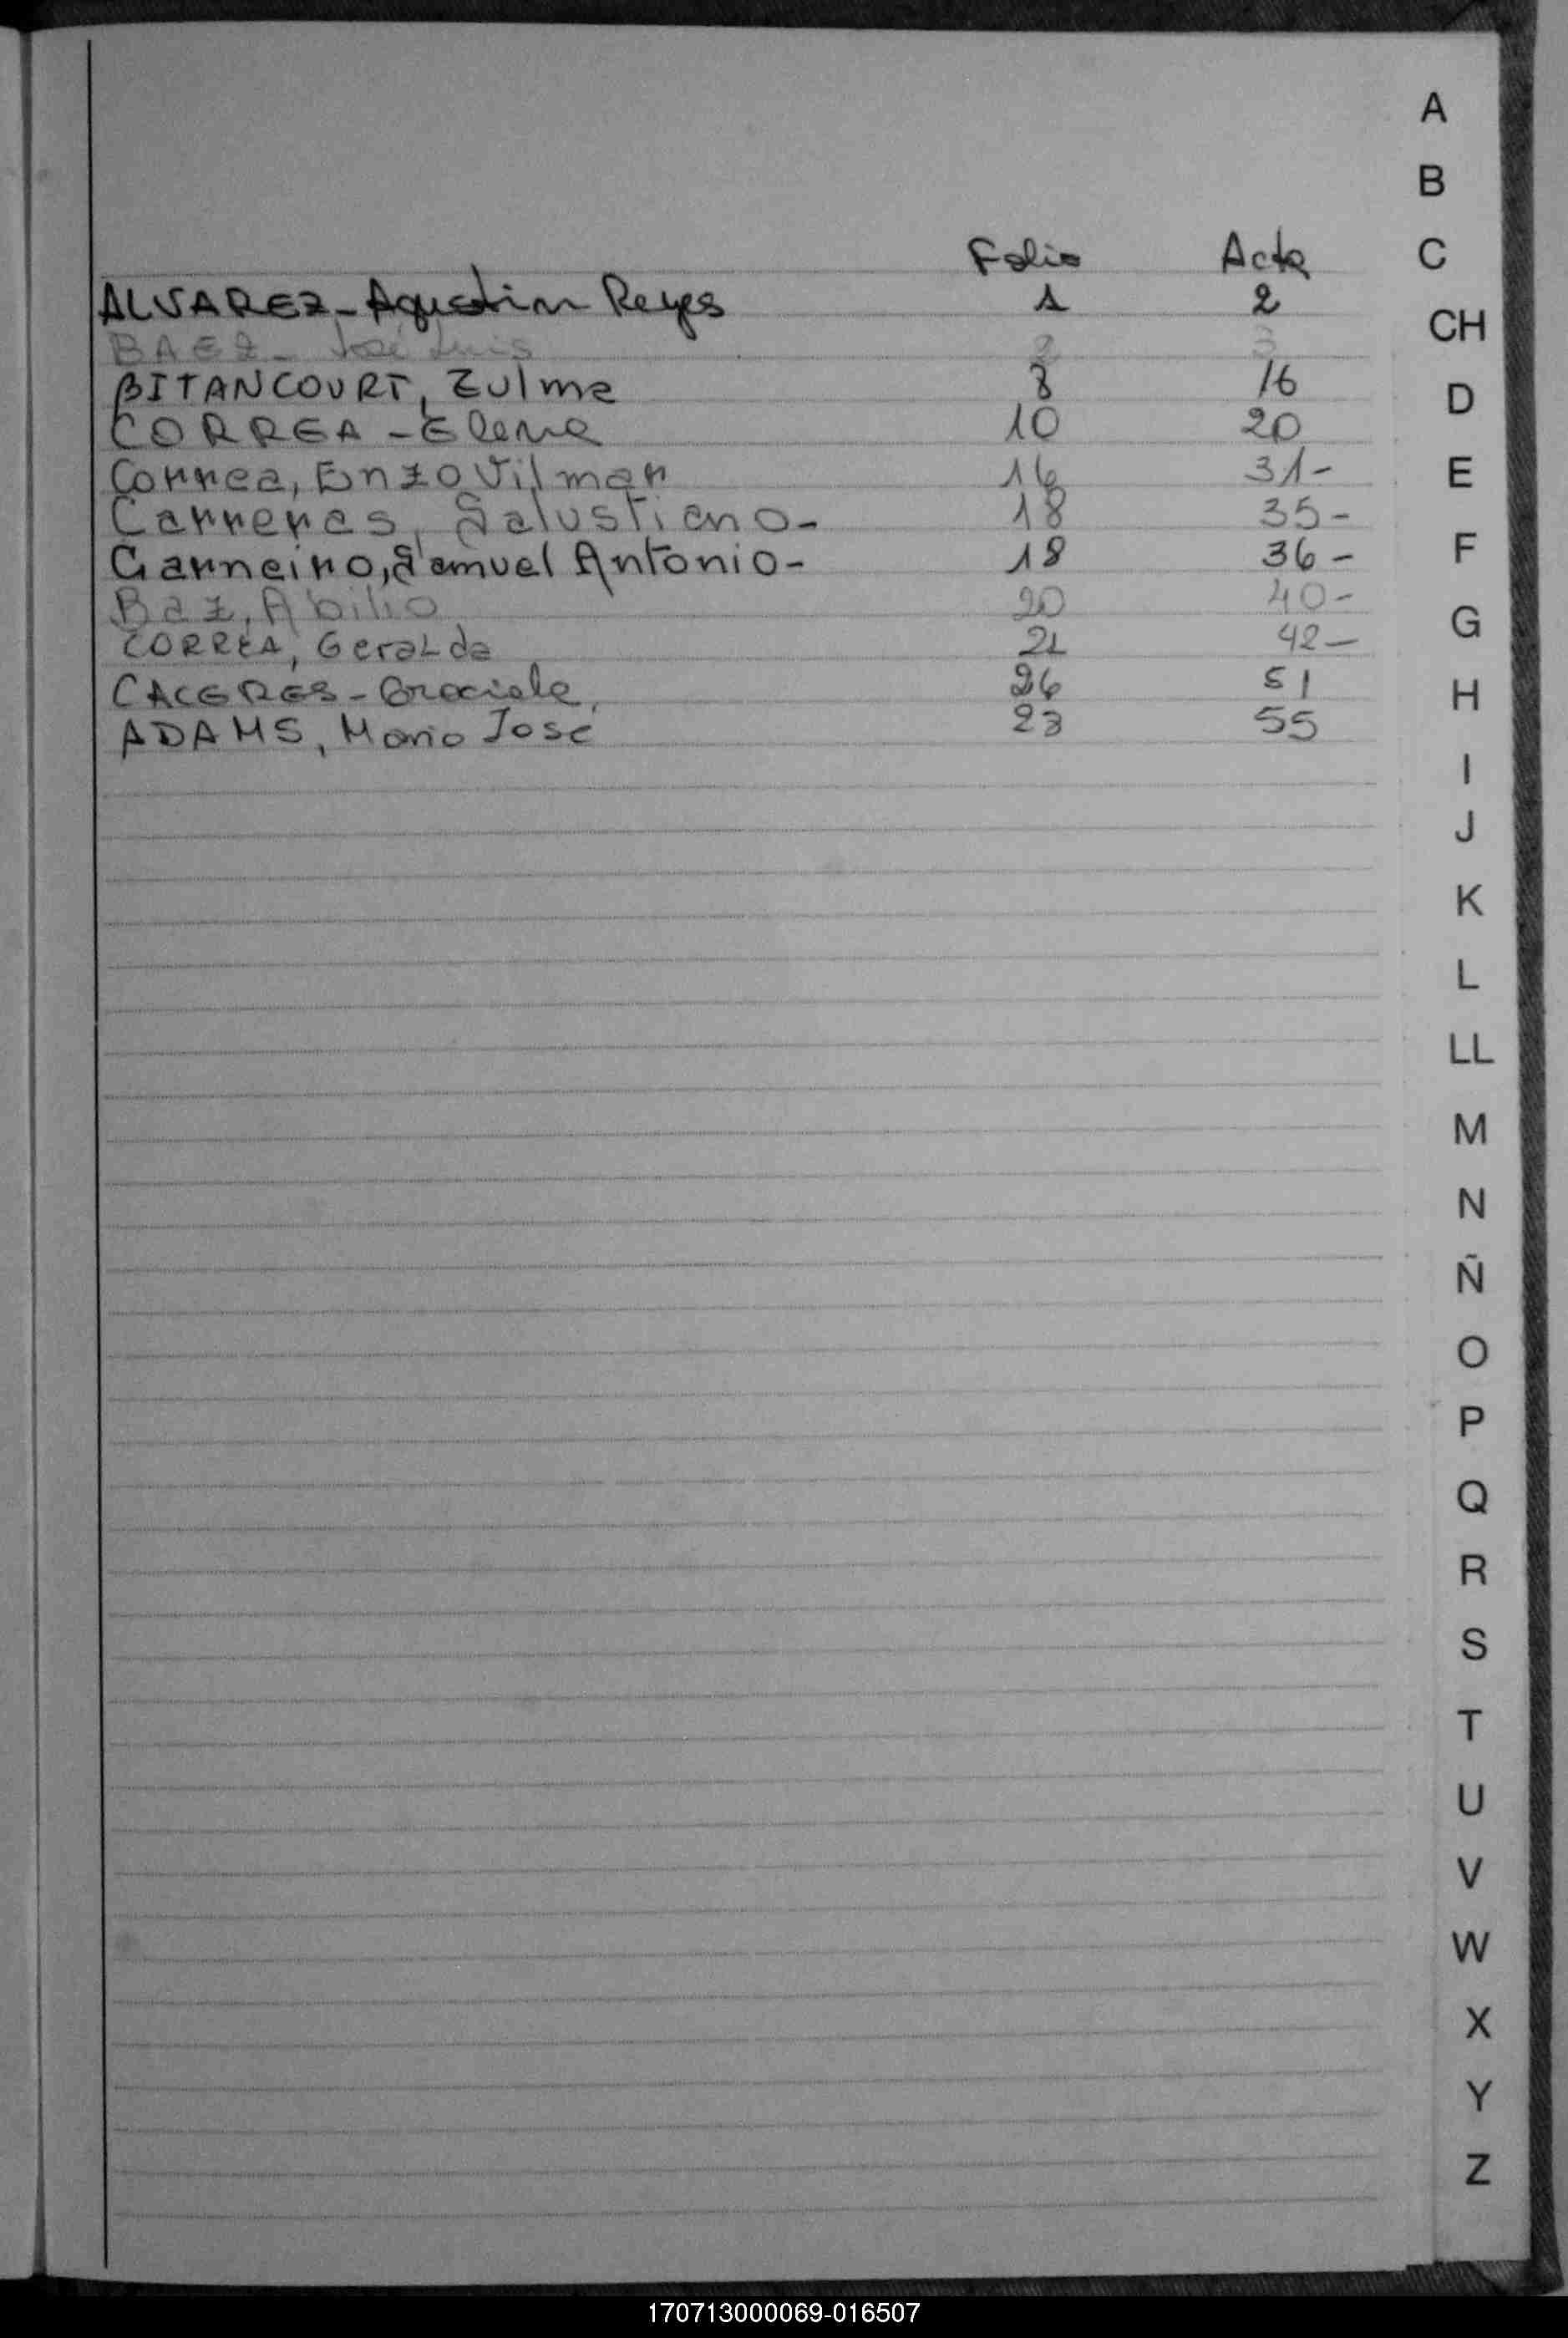 Folio Acta
ALVAREZ - Agustin Reyes 1 2
BAEZ - José Luis 2 3
BITANCOURT, Zulma 8 16
CORREA - Elena 10 20
Correa, Enzo Vilmar 16 31-
Carreras, Salustiano- 18 35-
Carneiro, Samuel Antonio- 18 36-
Baz, Abilio 20 40-
CORREA, Geralda 21 42-
CACERES - Graciela, 26 51
ADAMS, Mario José 28 55
A
B
C
CH
D
E
F
G
H
I
J
K
L
LL
M
N
Ñ
O
P
Q
R
S
T
U
V
W
X
Y
Z
170713000069-016507